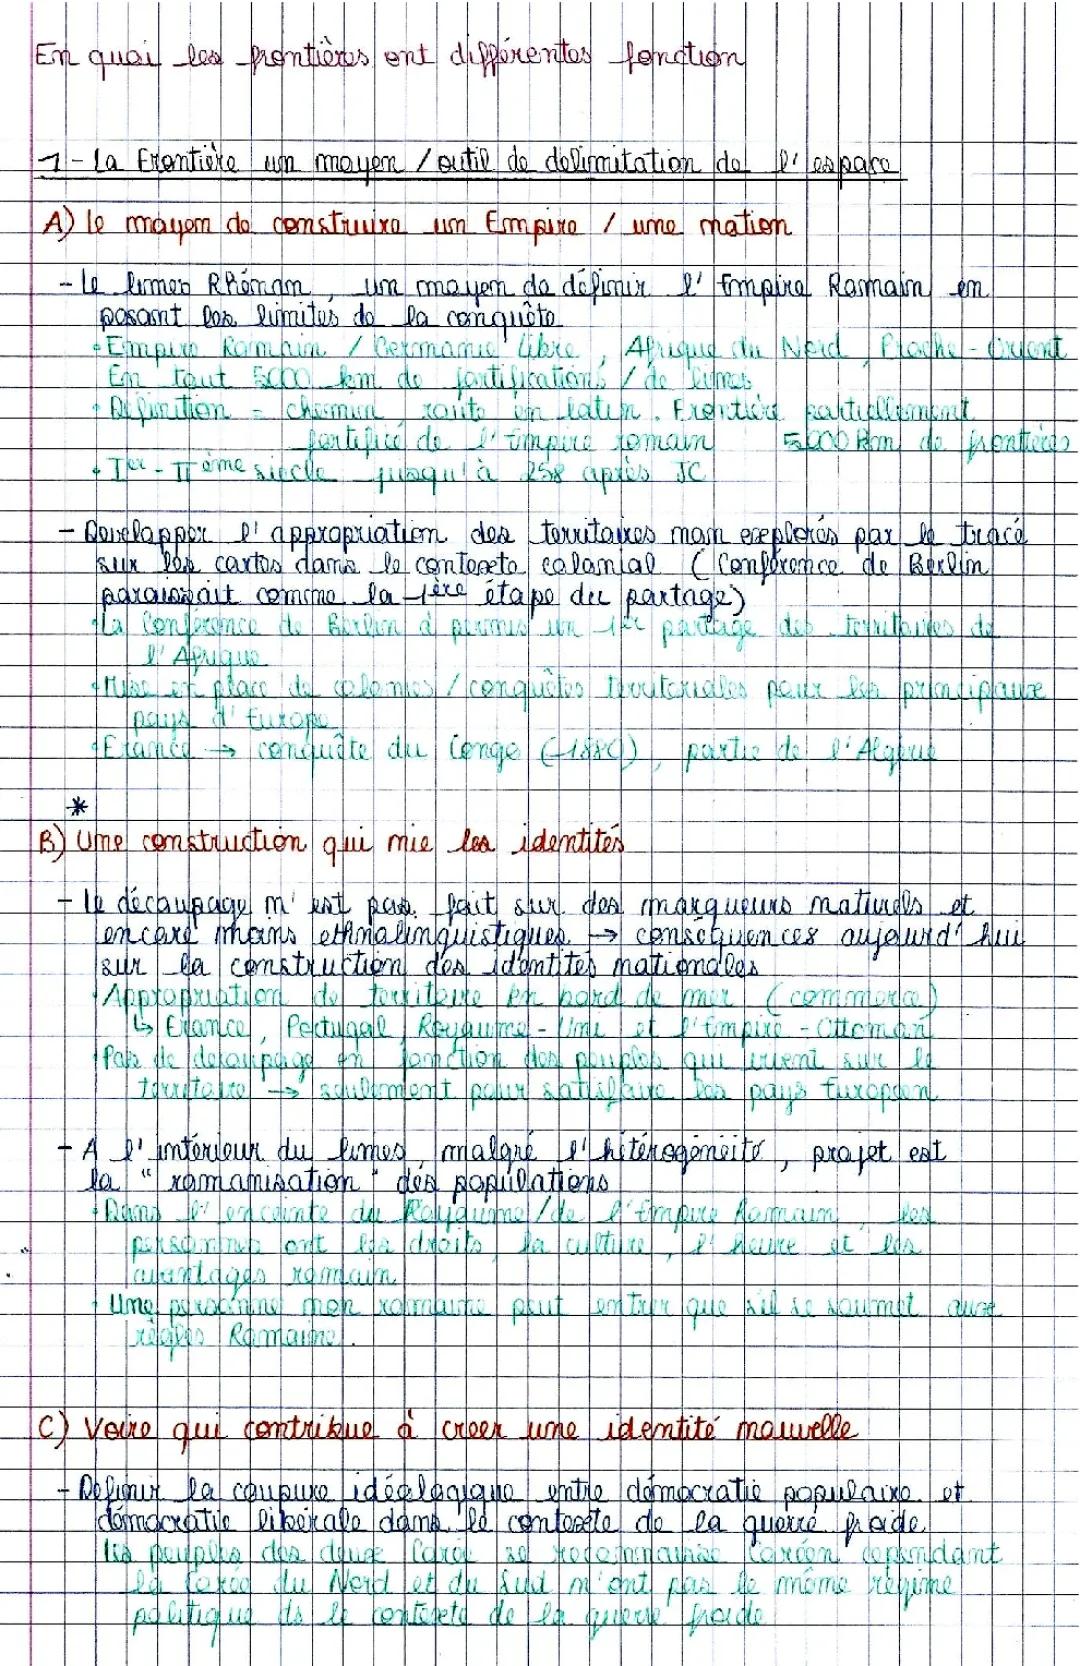 En quoi les frontières ont différentes fonction
1 - La Frontière un moyen / outil de délimitation de l'espace
A) le moyen de construire un Empire / une nation
- Le limes Rhénan, un moyen de définir l'Empire Romain en
posant les limites de la conquête
• Empire Romain / Germanie libre, Afrique du Nord, Proche-Orient
En tout 5000 km de fortifications / de limes
• Définition = chemin route en latin. Frontière partiellement
fortifiée de l'Empire romain 5000 km de frontières
• Ier - IIème siècle jusqu'à 258 après JC
- Développer l'appropriation des territoires non explorés par le tracé
sur les cartes dans le contexte colonial (Conférence de Berlin
paraissait comme la 1ère étape du partage)
• La Conférence de Berlin à permis un 1er partage des territoires de
l'Afrique
• Mise en place de colonies / conquêtes territoriales pour les principaux
pays d'Europe
• France → conquête du Congo (-1880), partie de l'Algérie
*
B) Une construction qui nie les identités
- le découpage n'est pas fait sur des marqueurs naturels et
encore moins ethnolinguistiques → conséquences aujourd'hui
sur la construction des identités nationales
• Appropriation de territoire en bord de mer (commerce)
↳ France, Portugal, Royaume-Uni et l'Empire-Ottoman
• Pas de découpage en fonction des peuples qui vivent sur le
territoire → seulement pour satisfaire les pays Européen
- A l'intérieur du limes, malgré l'hétérogénéité, projet est
la "romanisation" des populations
• Dans l'enceinte du Royaume / de l'Empire Romain, les
personnes ont les droits, la culture, l'heure et les
avantages romain
• Une personne non romaine peut entrer que s'il se soumet aux
règles Romaine.
C) Voire qui contribue à créer une identité nouvelle
- Définir la coupure idéologique entre démocratie populaire et
démocratie libérale dans le contexte de la guerre froide
les peuples des deux Corée se reconnaisse Coréen cependant
la Corée du Nord et du Sud n'ont pas le même régime
politique ds le contexte de la guerre froide